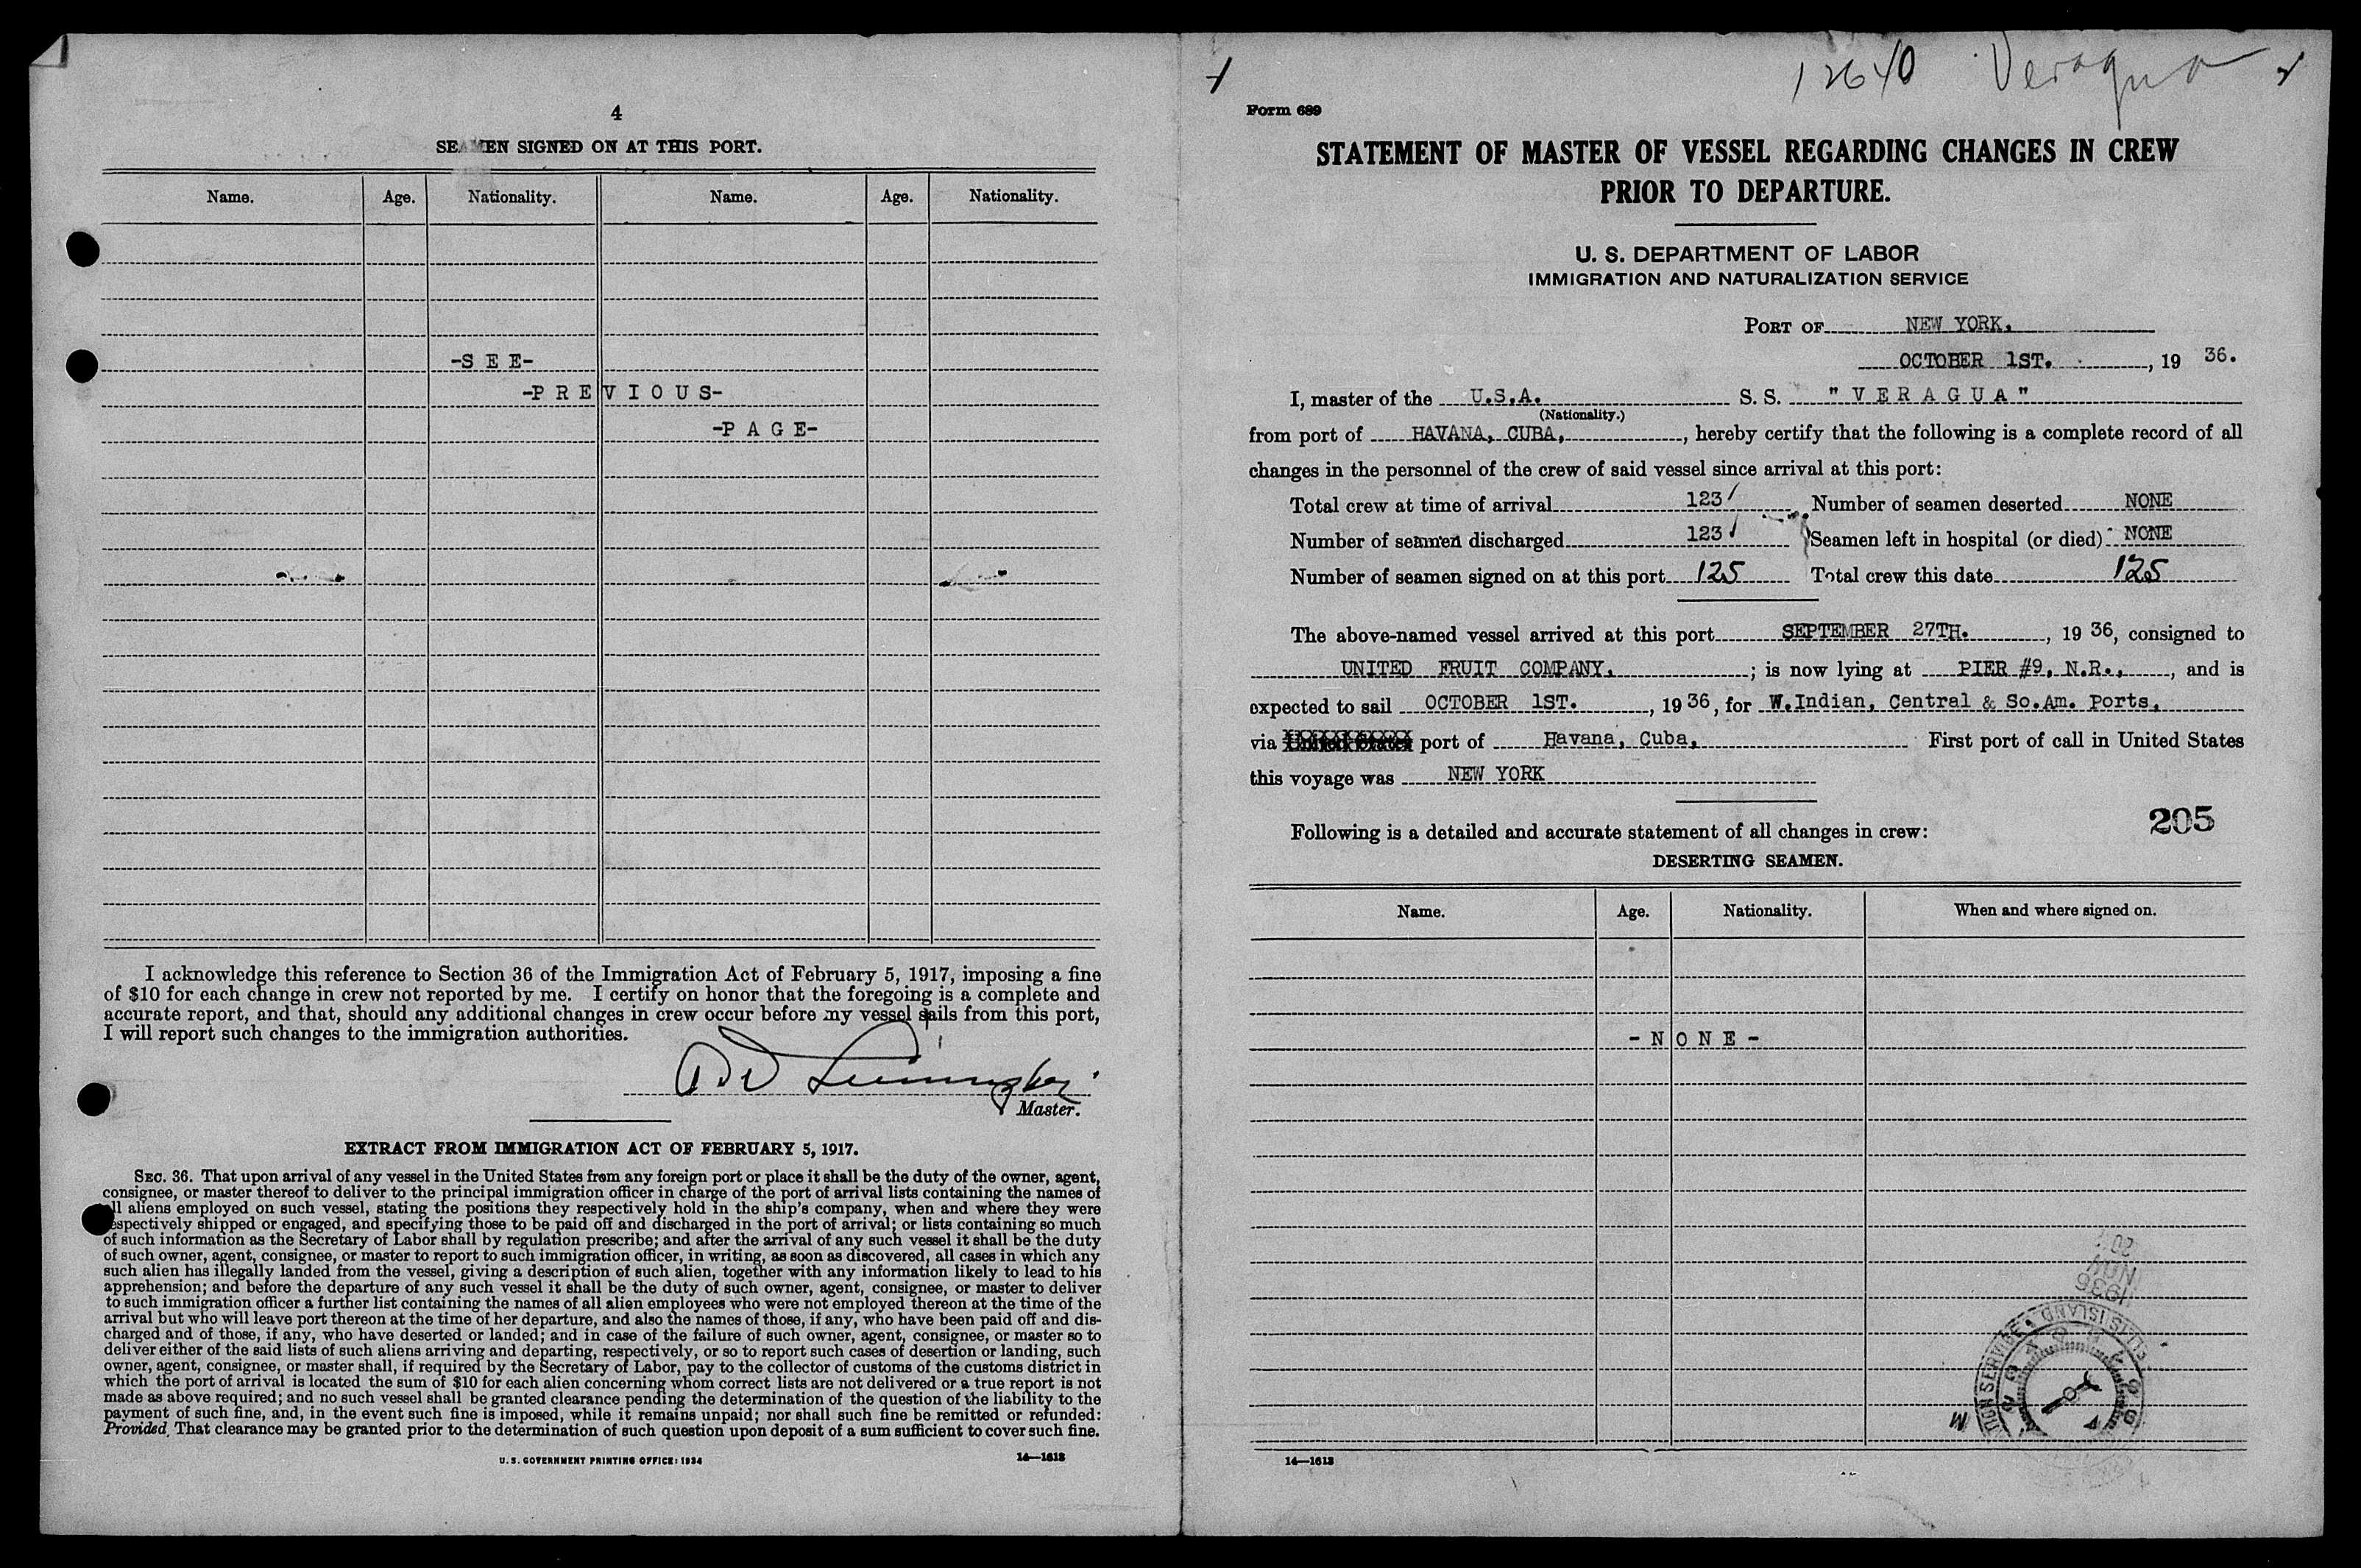 4
SEAMEN SIGNED ON AT THIS PORT.
Name. Age. Nationality. Name. Age. Nationality.
-S E E-
-P R E V I O U S-
-P A G E-
I acknowledge this reference to Section 36 of the Immigration Act of February 5, 1917, imposing a fine
of $10 for each change in crew not reported by me. I certify on honor that the foregoing is a complete and
accurate report, and that, should any additional changes in crew occur before my vessel sails from this port,
I will report such changes to the immigration authorities.
Master.
EXTRACT FROM IMMIGRATION ACT OF FEBRUARY 5, 1917.
SEC. 36. That upon arrival of any vessel in the United States from any foreign port or place it shall be the duty of the owner, agent,
consignee, or master thereof to deliver to the principal immigration officer in charge of the port of arrival lists containing the names of
all aliens employed on such vessel, stating the positions they respectively hold in the ship's company, when and where they were
respectively shipped or engaged, and specifying those to be paid off and discharged in the port of arrival; or lists containing so much
of such information as the Secretary of Labor shall by regulation prescribe; and after the arrival of any such vessel it shall be the duty
of such owner, agent, consignee, or master to report to such immigration officer, in writing, as soon as discovered, all cases in which any
such alien has illegally landed from the vessel, giving a description of such alien, together with any information likely to lead to his
apprehension; and before the departure of any such vessel it shall be the duty of such owner, agent, consignee, or master to deliver
to such immigration officer a further list containing the names of all alien employees who were not employed thereon at the time of the
arrival but who will leave port thereon at the time of her departure, and also the names of those, if any, who have been paid off and dis-
charged and of those, if any, who have deserted or landed; and in case of the failure of such owner, agent, consignee, or master so to
deliver either of the said lists of such aliens arriving and departing, respectively, or so to report such cases of desertion or landing, such
owner, agent, consignee, or master shall, if required by the Secretary of Labor, pay to the collector of customs of the customs district in
which the port of arrival is located the sum of $10 for each alien concerning whom correct lists are not delivered or a true report is not
made as above required; and no such vessel shall be granted clearance pending the determination of the question of the liability to the
payment of such fine, and, in the event such fine is imposed, while it remains unpaid; nor shall such fine be remitted or refunded:
Provided, That clearance may be granted prior to the determination of such question upon deposit of a sum sufficient to cover such fine.
U. S. GOVERNMENT PRINTING OFFICE: 1934 14—1613
12640 Veragua
Form 689
STATEMENT OF MASTER OF VESSEL REGARDING CHANGES IN CREW
PRIOR TO DEPARTURE.
U. S. DEPARTMENT OF LABOR
IMMIGRATION AND NATURALIZATION SERVICE
PORT OF NEW YORK.
OCTOBER 1ST. , 19 36.
I, master of the U.S.A. S. S. " V E R A G U A "
(Nationality.)
from port of HAVANA, CUBA, , hereby certify that the following is a complete record of all
changes in the personnel of the crew of said vessel since arrival at this port:
Total crew at time of arrival 123 Number of seamen deserted NONE
Number of seamen discharged 123 Seamen left in hospital (or died) NONE
Number of seamen signed on at this port 125 Total crew this date 125
The above-named vessel arrived at this port SEPTEMBER 27TH. , 19 36, consigned to
UNITED FRUIT COMPANY. ; is now lying at PIER #9, N.R., , and is
expected to sail OCTOBER 1ST. , 19 36, for W.Indian, Central & So.Am. Ports,
via United States port of Havana, Cuba, First port of call in United States
this voyage was NEW YORK
205
Following is a detailed and accurate statement of all changes in crew:
DESERTING SEAMEN.
Name. Age. Nationality. When and where signed on.
- N O N E -
1936
14—1613